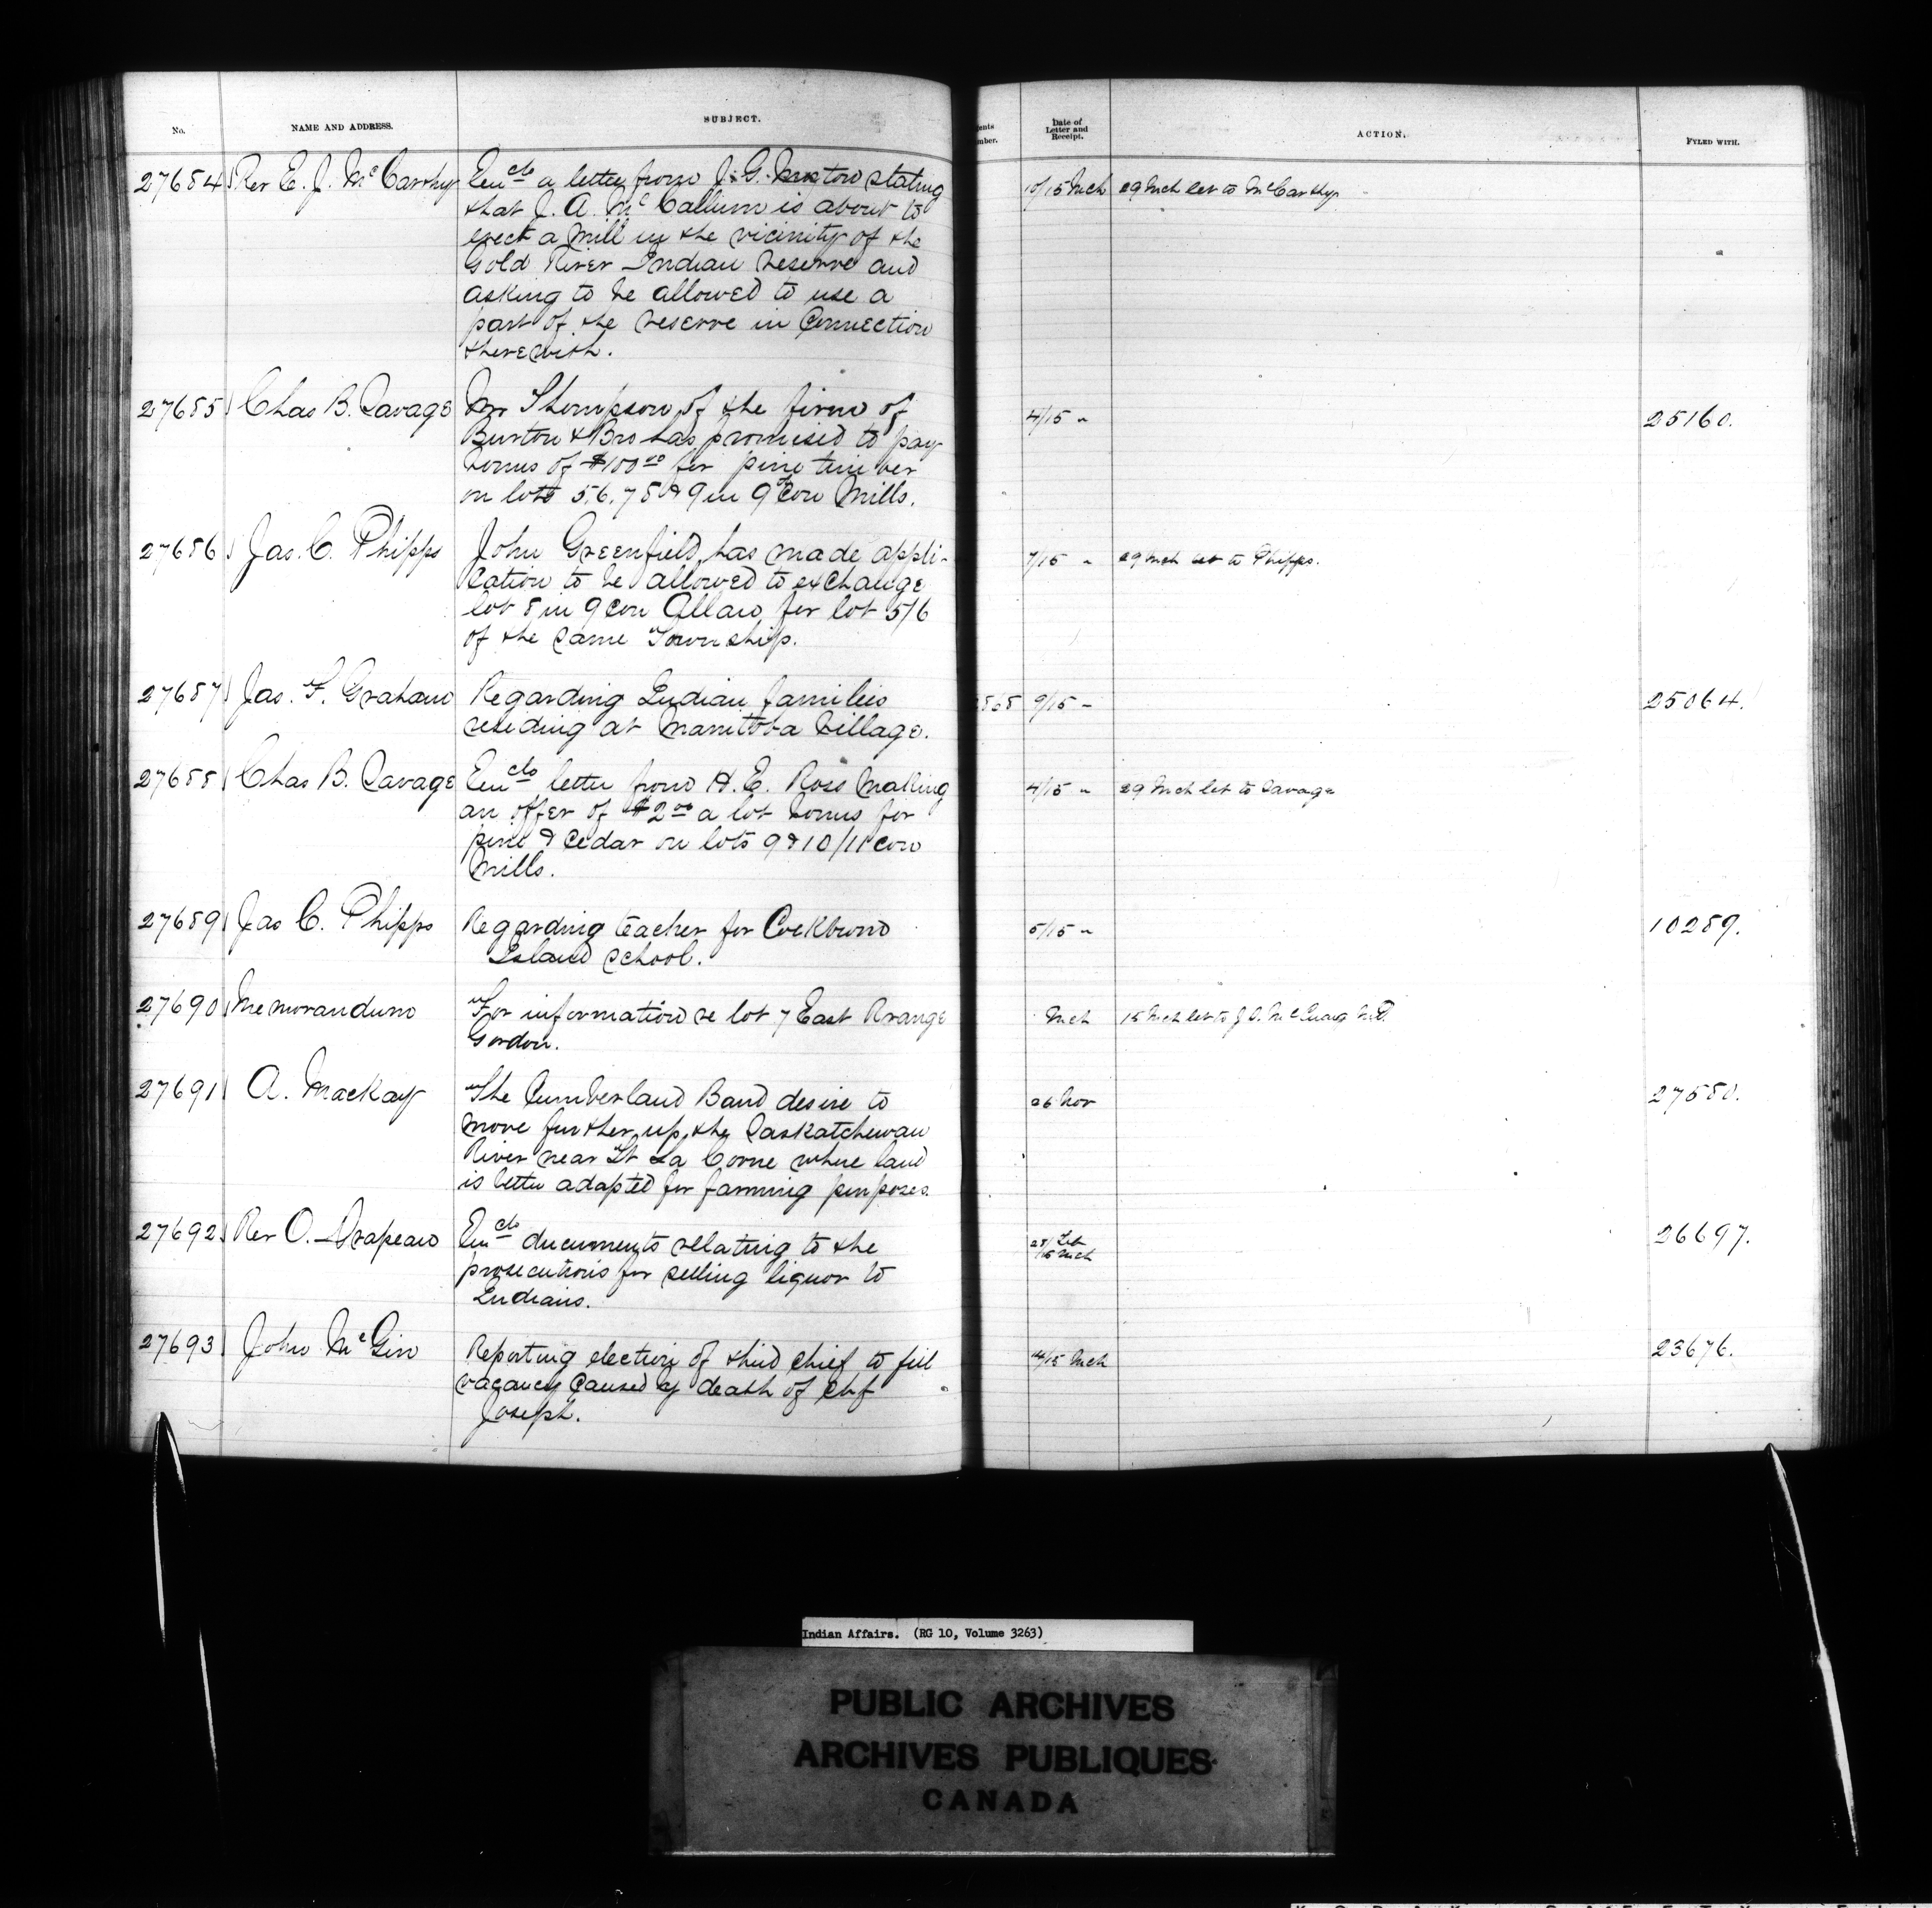 No.
NAME AND ADDRESS.
SUBJECT.
Date of
Letter and
Receipt.
ACTION.
FYLED WITH.
27684 Rev E. J. McCarthy Encls a letter from J. G. stating 10/15 Mch 29 Mch let to McCarthy
that J. A. McCallum is about to
erect a Mill in the vicinity of the
Gold River Indian Reserve and
asking to be allowed to use a
part of the reserve in Connection
therewith.
27685 Chas B. Savage Mr Thompson of the firm of 4/15 " 25160.
Burton & Bro has promised to pay
bonus of $100.00 for pine timber
on lots 5.6.7 8 & 9 in 9th Con Mills.
27686 Jas. C. Phipps John Greenfield has made appli- 7/15 " 29 Mch let to Phipps.
cation to be allowed to exchange
lot 8 in 9 con Allan for lot 5/6
of the same Township.
27687 Jas. F. Graham Regarding Indian families 9/15 " 25064.
residing at Manitoba Village.
27688 Chas B. Savage Encls letter from H. E. Ross Making 4/15 " 29 Mch let to Savage
an offer of $2.00 a lot bonus for
pine & Cedar on lots 9 & 10/11 con
Mills.
27689 Jas C. Phipps Regarding teacher for Cockburn 5/15 " 10289.
Island School.
27690 Memorandum For information re lot 7 East Range Mch 15 Mch let to J. S.
Gordon.
27691 A. Mackay The Cumberland Band desire to 26 Nov 27580.
move further up the Saskatchewan
River near Ft La Corne where land
is better adapted for farming purposes.
27692 Rev O. Drapeau Encls documents relating to the 28/ Feb 26697.
/15 Mch
prosecutions for selling liquor to
Indians.
27693 John McGirr Reporting election of third chief to fill 14/15 Mch 23676.
vacancy Caused by death of Chf
Joseph.
Indian Affairs. (RG 10, Volume 3263)
PUBLIC ARCHIVES
ARCHIVES PUBLIQUES
CANADA